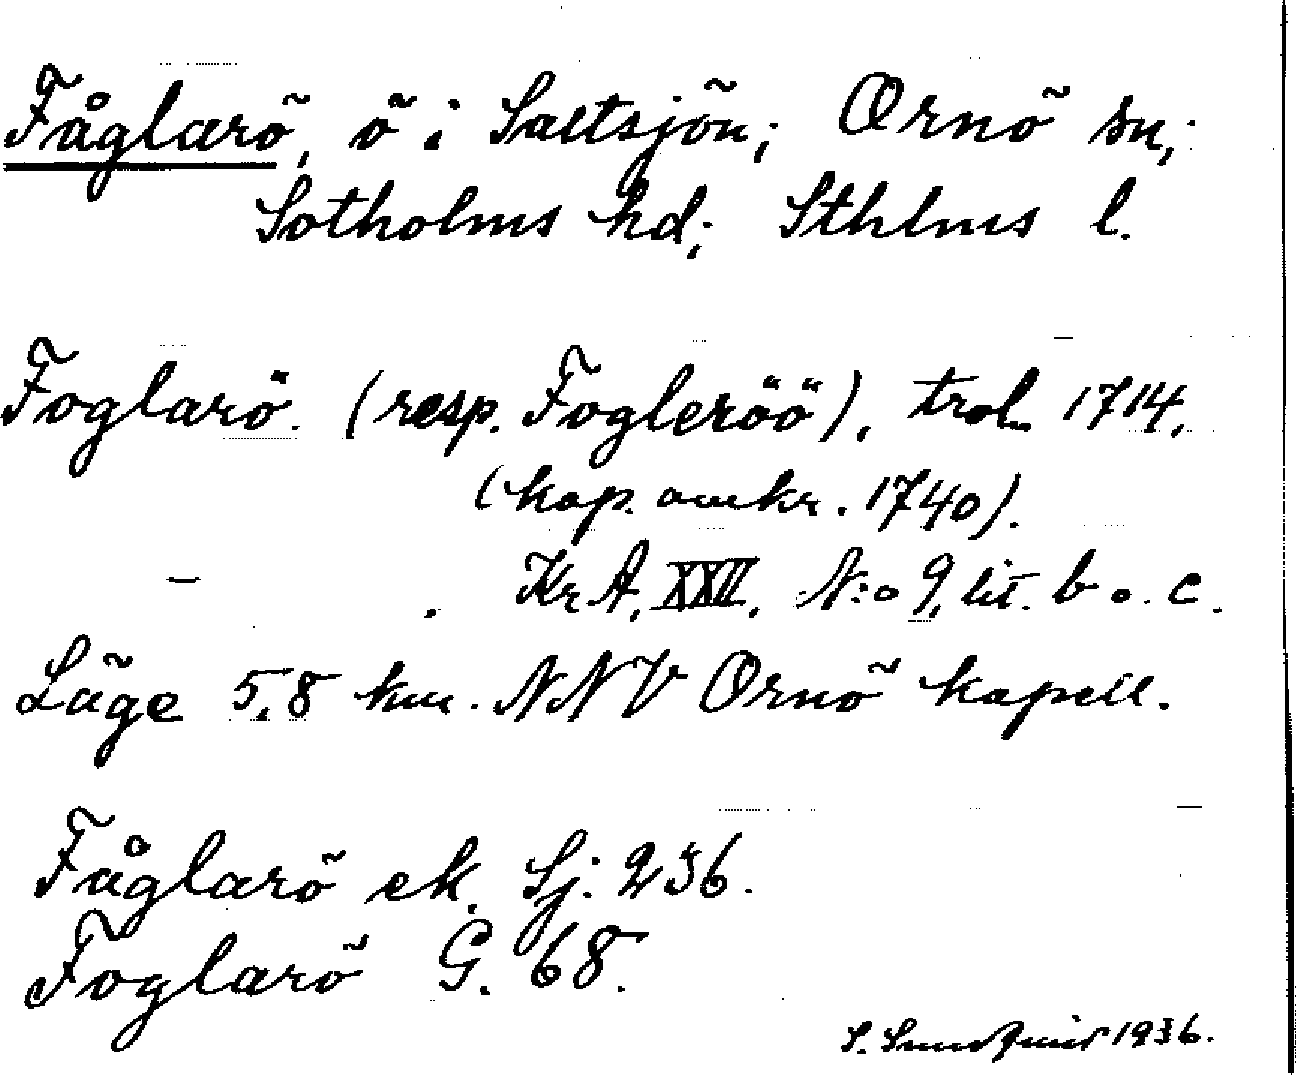 Fåglarö, ö i Saltsjön; Ornö sn;
Sotholms hd; Sthlms l.
Foglarö. (resp. Fogleröö), trol. 1714,
(kop. omkr. 1740).
Kr A, XXII, N:o 9, lit. b o. c.
Läge 5,8 km. NNV Ornö kapell.
Fåglarö ek. Sj. 236.
Foglarö G. 68.
S. 1936.